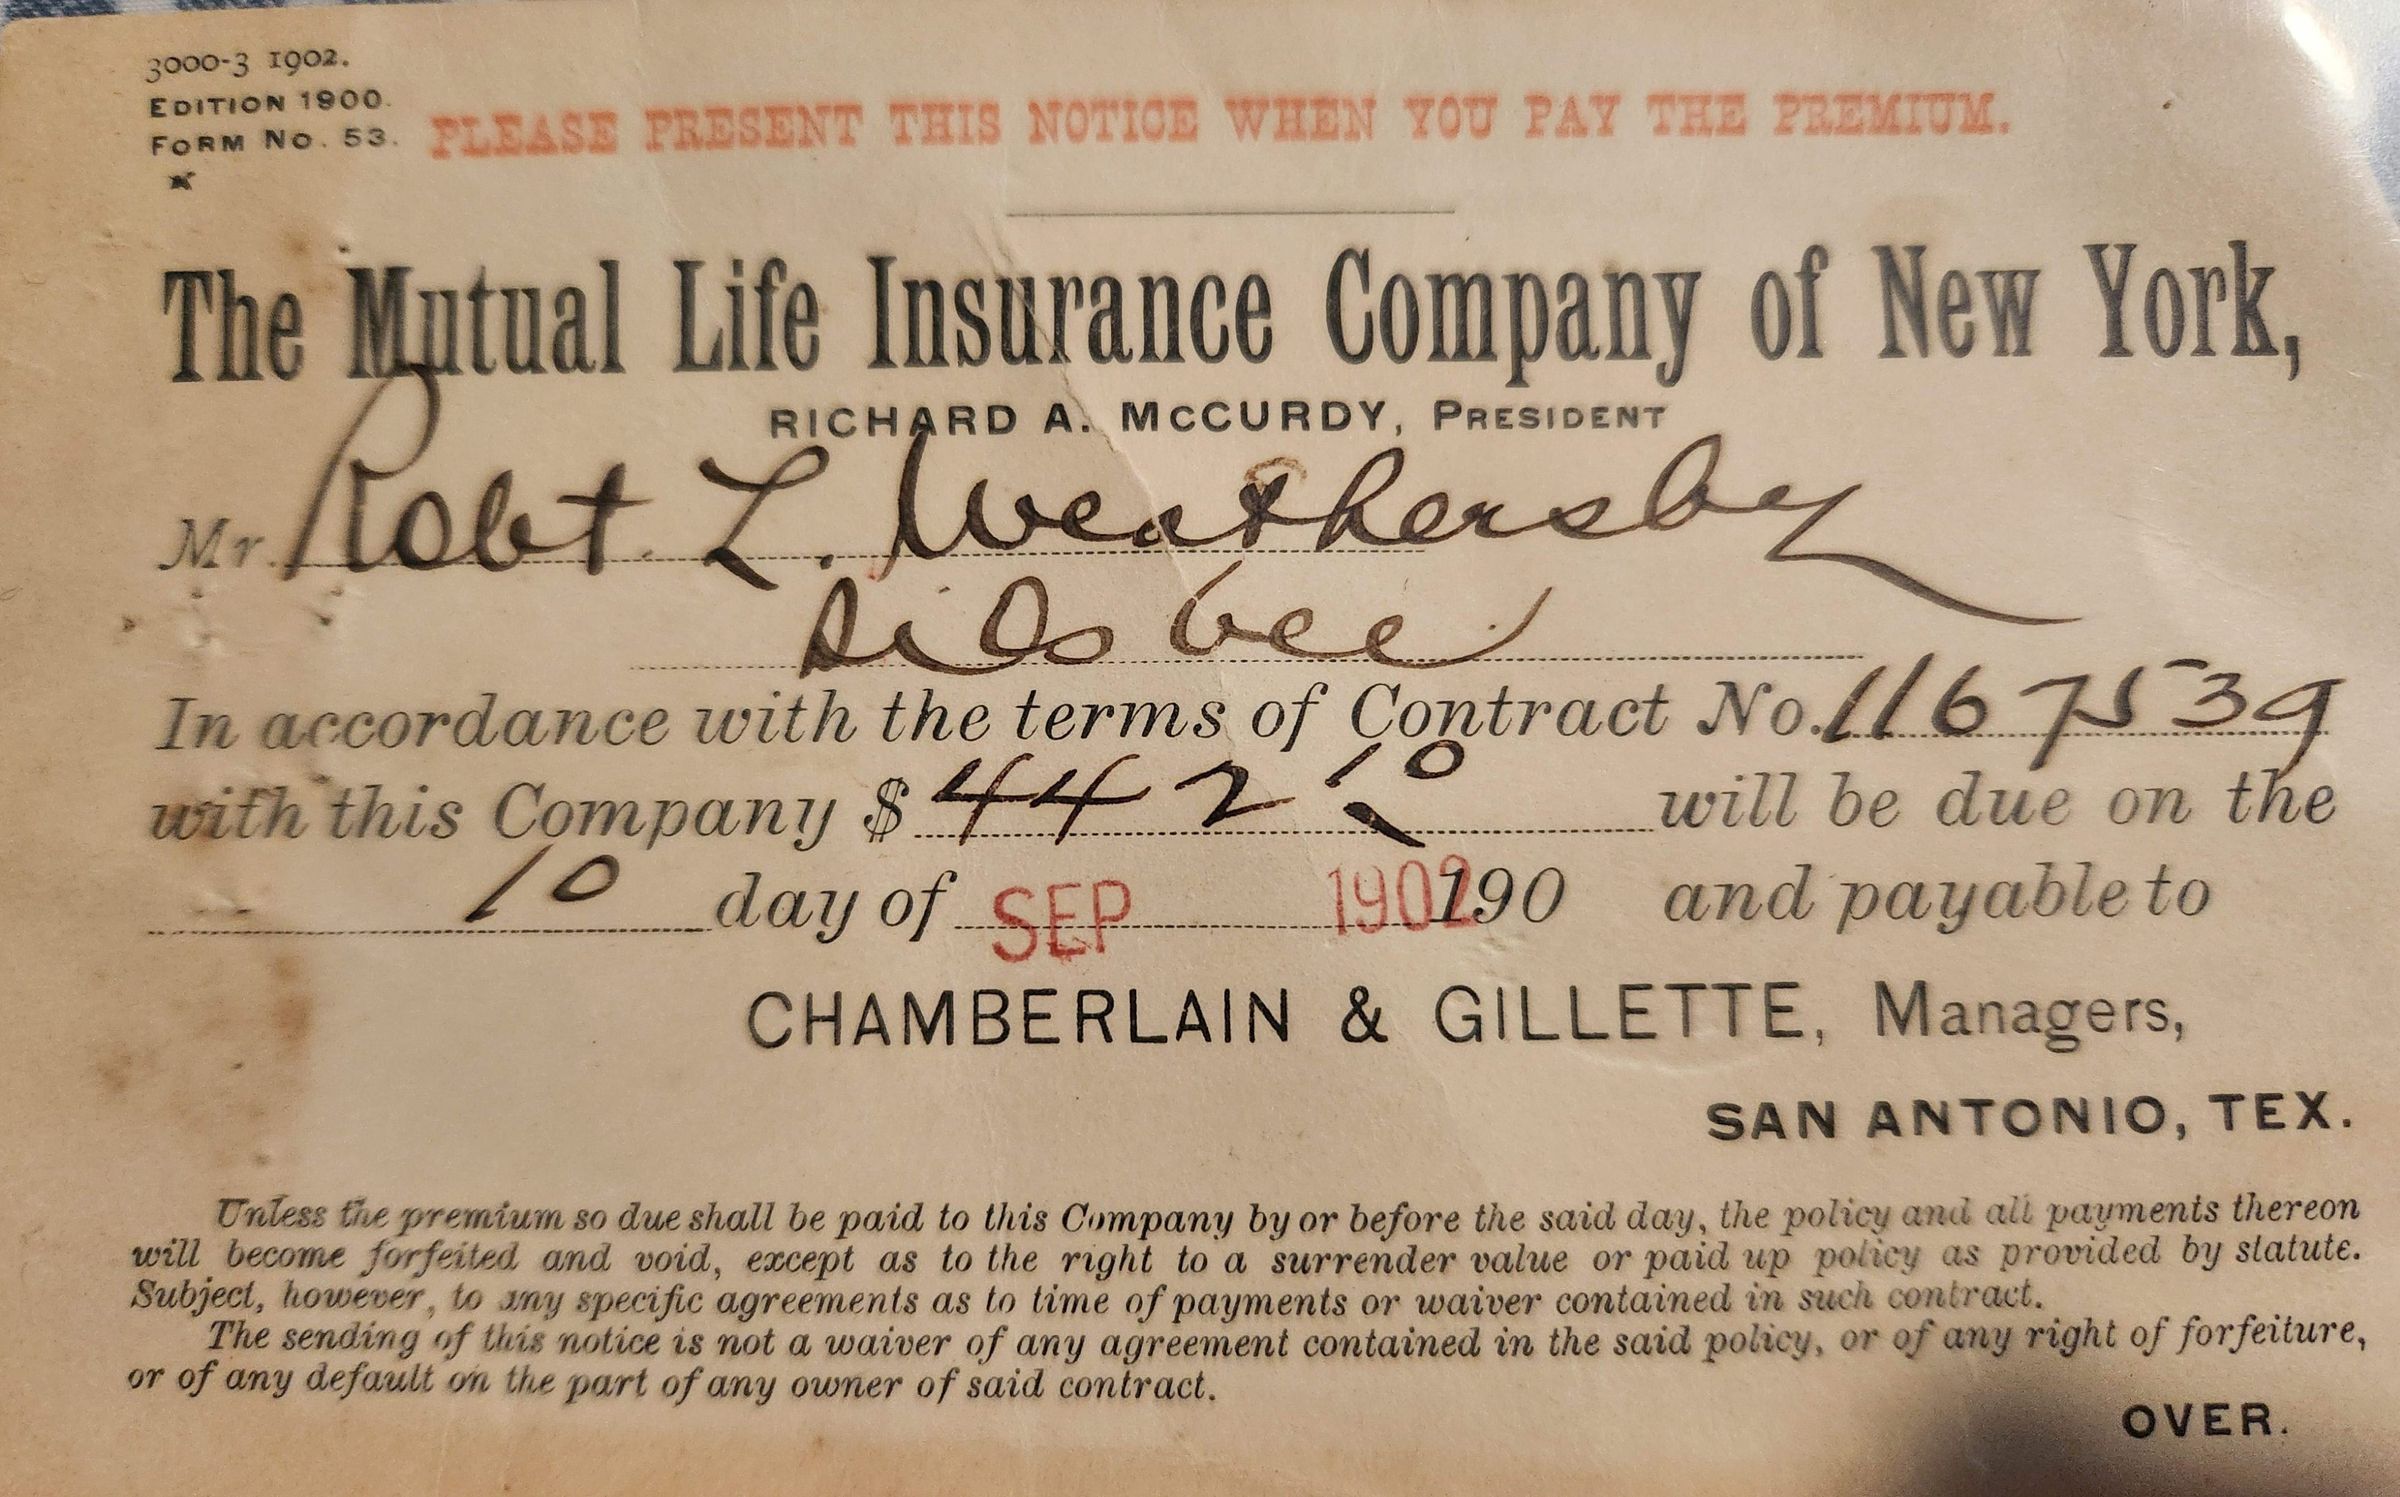 3000-3 1902.
EDITION 1900.
FORM NO. 53.
PLEASE PRESENT THIS NOTICE WHEN YOU PAY THE PREMIUM.
The Mutual Life Insurance Company of New York,
RICHARD A. McCURDY, PRESIDENT
Mr. Robt. L. Weathersby
Silsbee
In accordance with the terms of Contract No. 1167539
with this Company $ 442 10 will be due on the
10 day of SEP 1902 190 and payable to
CHAMBERLAIN & GILLETTE, Managers,
SAN ANTONIO, TEX.
Unless the premium so due shall be paid to this Company by or before the said day, the policy and all payments thereon
will become forfeited and void, except as to the right to a surrender value or paid up policy as provided by statute.
Subject, however, to any specific agreements as to time of payments or waiver contained in such contract.
The sending of this notice is not a waiver of any agreement contained in the said policy, or of any right of forfeiture,
or of any default on the part of any owner of said contract.
OVER.